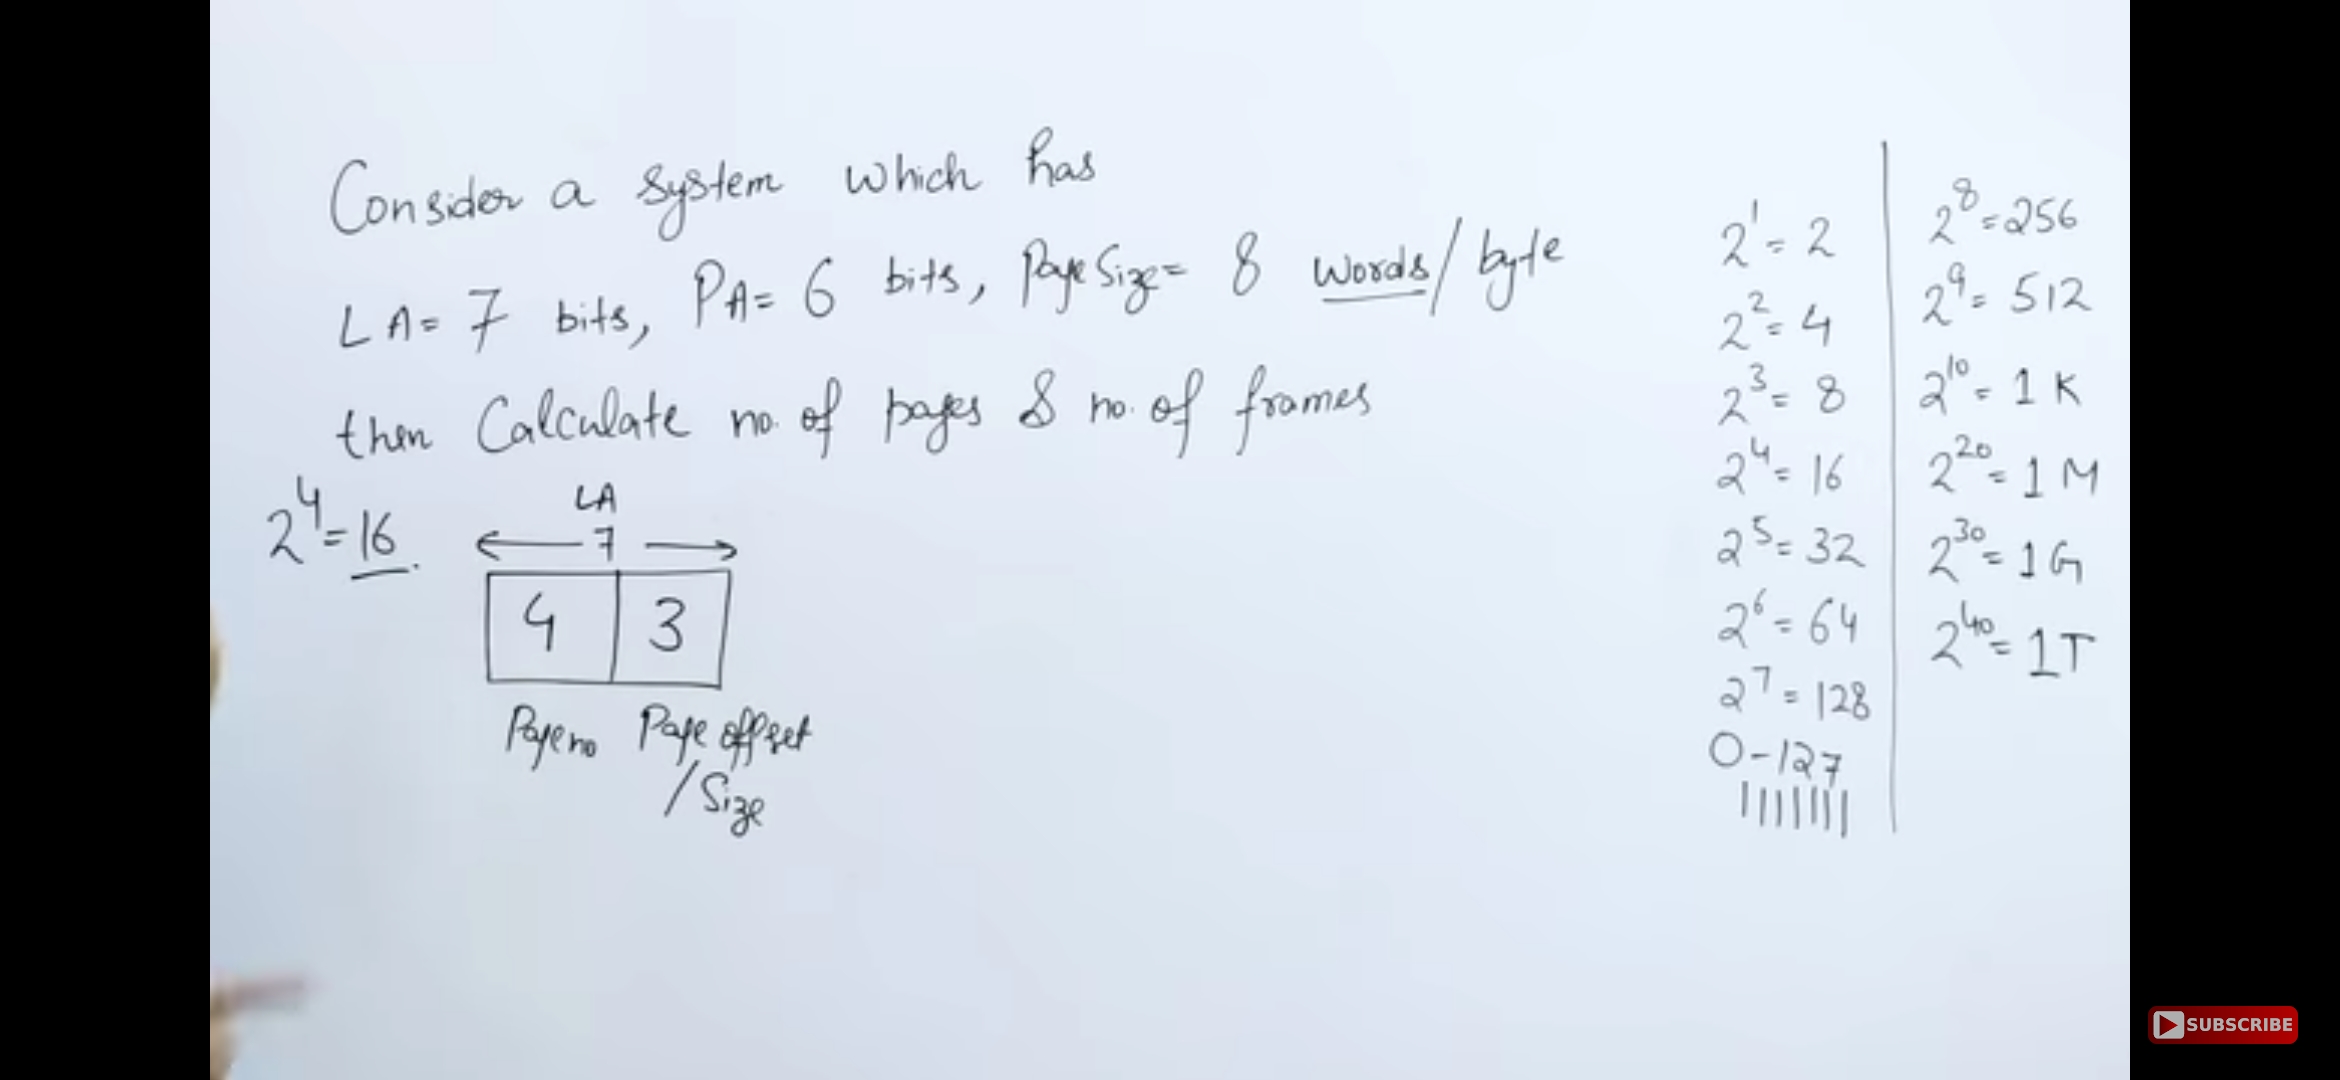 Consider a system which has
LA= 7 bits, PA= 6 bits, Page Size= 8 words/byte
then Calculate no. of pages & no. of frames
2^4=16.
LA
7
4 3
Page no Page offset
/Size
2^1=2
2^2=4
2^3=8
2^4=16
2^5=32
2^6=64
2^7=128
0-127
|||||||
2^8=256
2^9=512
2^10=1K
2^20=1M
2^30=1G
2^40=1T
SUBSCRIBE